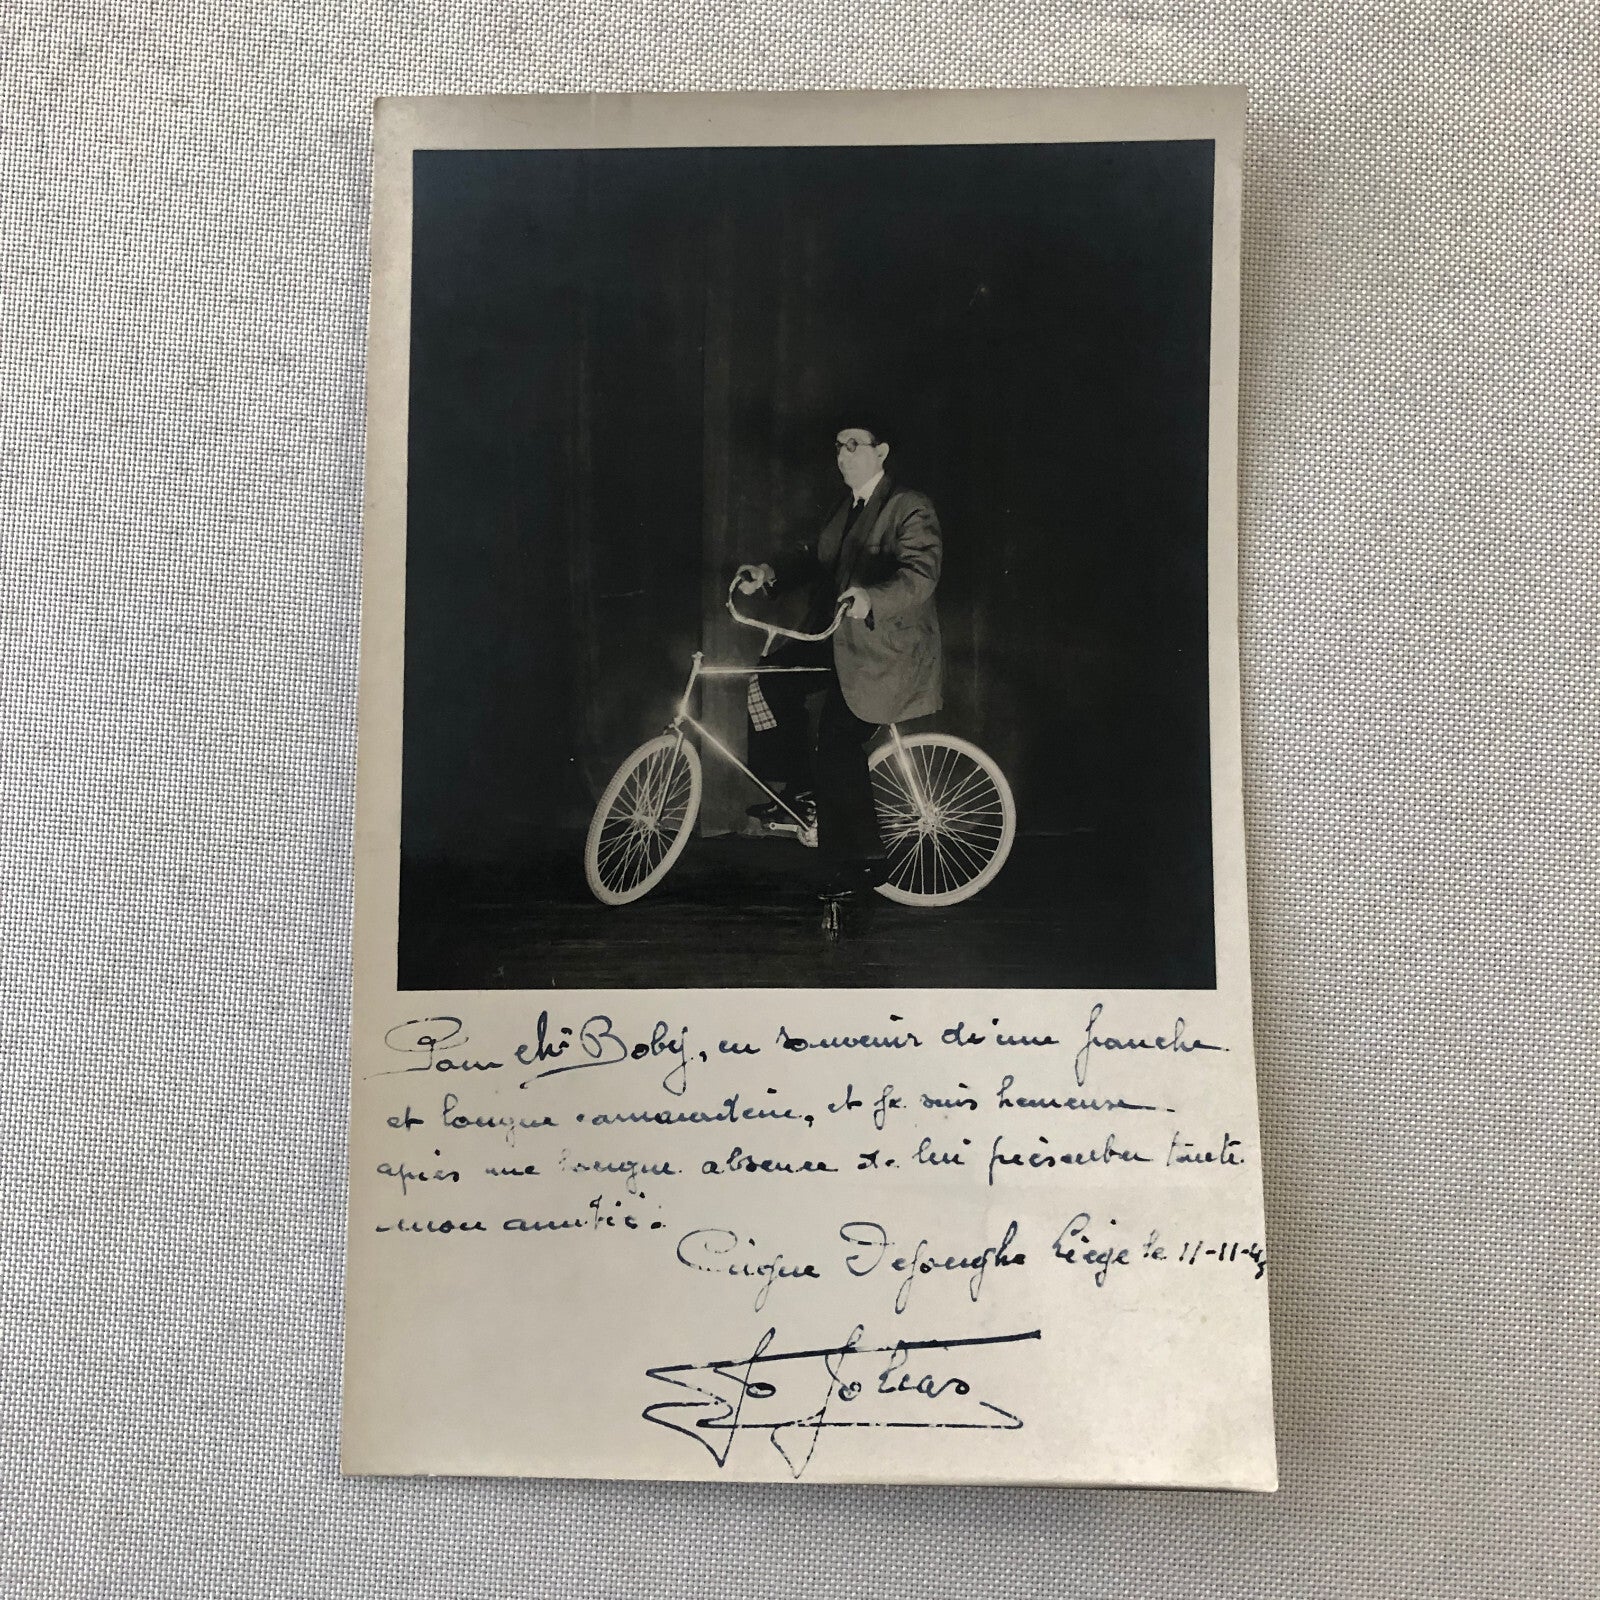 Pour Chr Boby, en souvenir d'une franche
et longue camaraderie, et je suis heureuse
après une longue absence de lui présenter toute
mon amitié.
Cirque Dejonghe Liège le 11-11-43
Jo Jolias